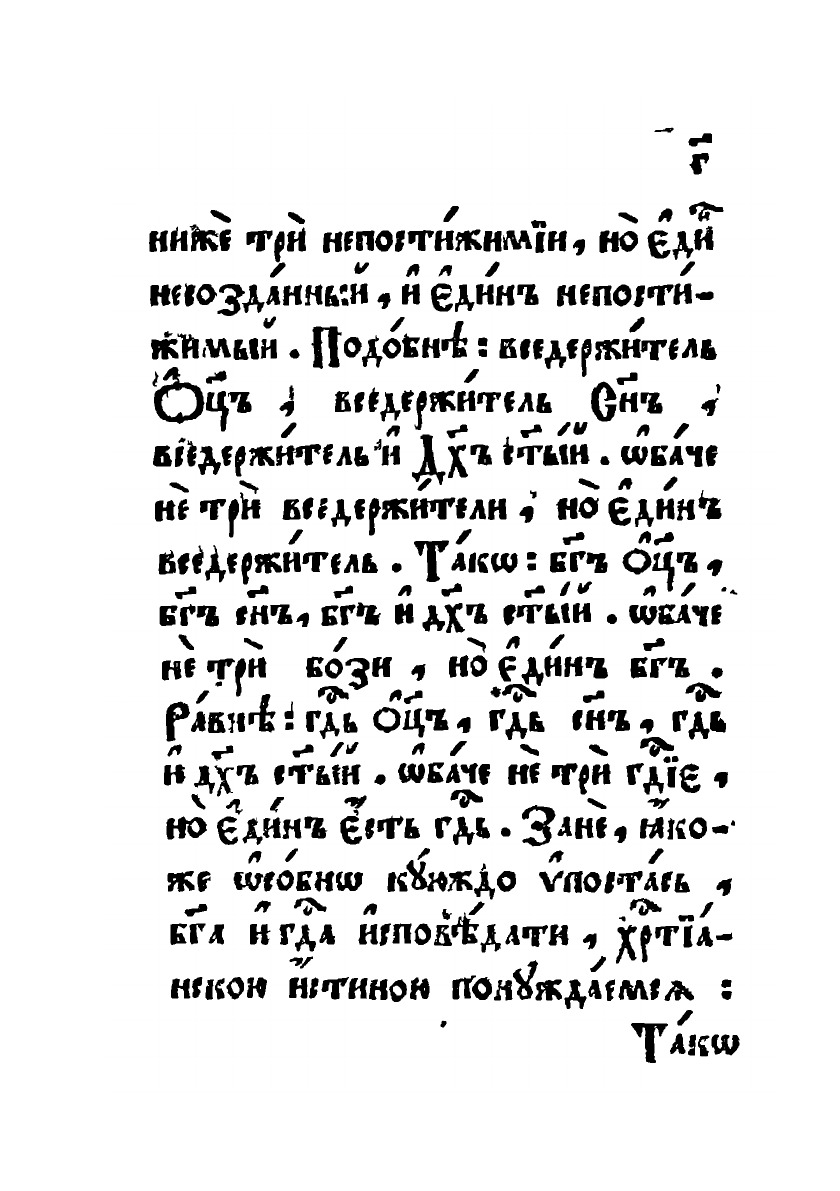 г҃
нижѐ трѝ непости́жимїи, но̀ є҆ди́н
несозда́нный, и҆ є҆ди́нъ непости́-
жимый. Подо́бнѣ: вседержи́тель
Ѻ҆ц҃ъ, вседержи́тель Сн҃ъ,
вседержи́тель и҆ Дх҃ъ ст҃ы́й. ѡ҆ба́че
нѐ трѝ вседержи́тели, но̀ є҆ди́нъ
вседержи́тель. Та́кѡ: бг҃ъ Ѻ҆ц҃ъ,
бг҃ъ сн҃ъ, бг҃ъ и҆ дх҃ъ ст҃ы́й. ѡ҆ба́че
нѐ трѝ бо́зи, но̀ є҆ди́нъ бг҃ъ.
Ра́внѣ: гдⷭ҇ь Ѻ҆ц҃ъ, гдⷭ҇ь сн҃ъ, гдⷭ҇ь
и҆ дх҃ъ ст҃ы́й. ѡ҆ба́че нѐ трѝ гдⷭ҇їє,
но̀ є҆ди́нъ є҆́сть гдⷭ҇ь. Занѐ, ꙗ҆́ко-
же ѡ҆со́бнѡ кꙋ́юждо ѵ҆поста́сь,
бг҃а и҆ гдⷭ҇а и҆сповѣ́дати, хрⷭ҇тїа́-
нскою и҆́стиною понꙋжда́емсѧ:
Та́кѡ